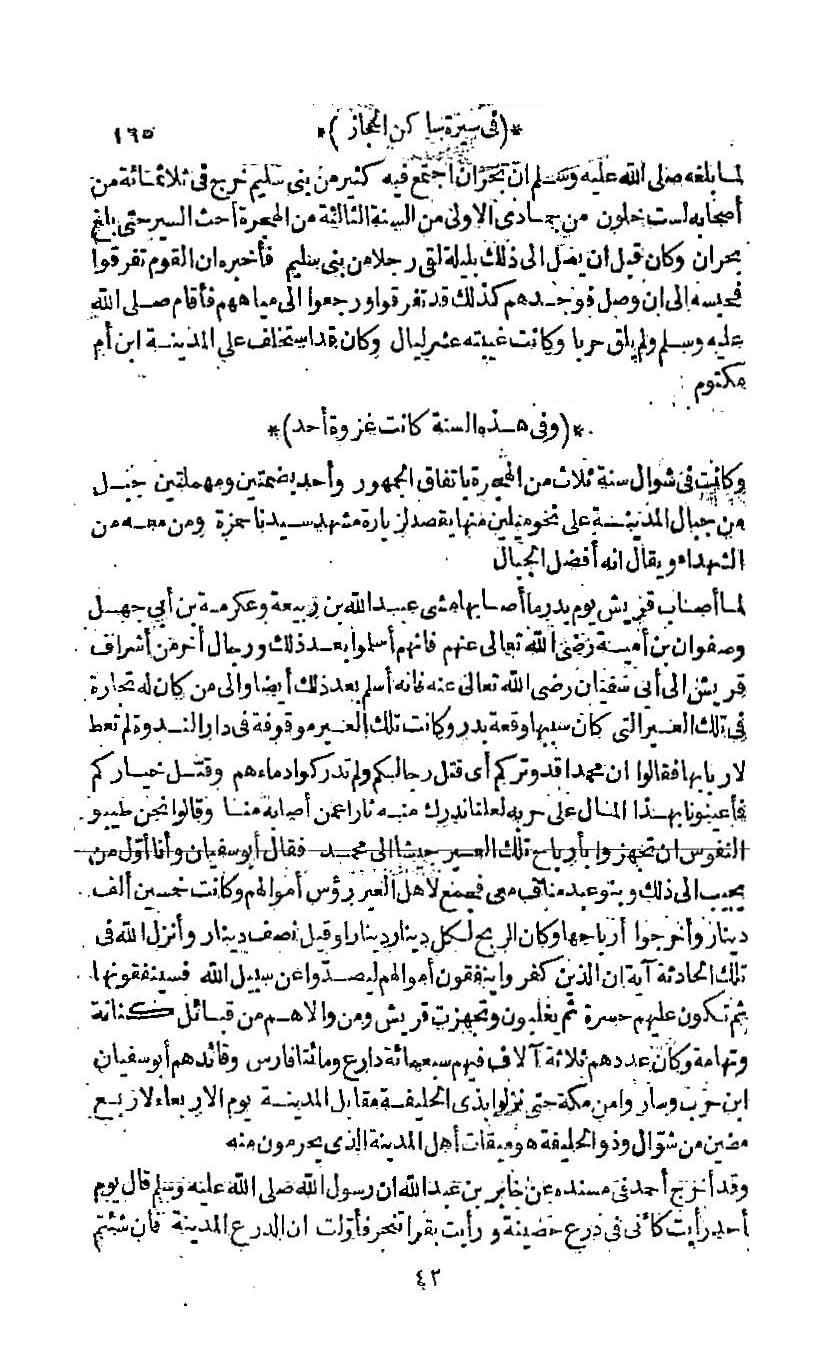 *(فى سيرة ساكن الحجاز)*
١٦٥
لما بلغه صلى الله عليه وسلم ان بحران اجتمع فيه كثير من بنى سليم خرج فى ثلاثمائة من
أصحابه لست خلون من جمادى الاولى من السنة الثالثة من الهجرة أحث السير حتى بلغ
بحران وكان قبل ان يصل الى ذلك بليلة لقى رجلا من بنى سليم فأخبره ان القوم تفرقوا
فحبسه الى ان وصل فوجدهم كذلك قد تفرقوا ورجعوا الى مياههم فأقام صلى الله
عليه وسلم ولم يلق حربا وكانت غيبته عشر ليال وكان قد استخلف على المدينة ابن أم
مكتوم
*(وفى هذه السنة كانت غزوة أحد)*
وكانت فى شوال سنة ثلاث من الهجرة باتفاق الجمهور وأحد بضمتين ومهملتين جبل
من جبال المدينة على نحو ميلين منها يقصد لزيارة مشهد سيدنا حمزة ومن معه من
الشهداء ويقال انه أفضل الجبال
لما أصاب قريش يوم بدر ما أصابها مشى عبد الله بن ربيعة وعكرمة بن أبى جهل
وصفوان بن أمية رضى الله تعالى عنهم فانهم أسلوا بعد ذلك ورجال أخر من أشراف
قريش الى أبى سفيان رضى الله تعالى عنه فانه أسلم بعد ذلك أيضا والى من كان له تجارة
فى تلك العير التى كان سببها وقعة بدر وكانت تلك العير موقوفة فى دار الندوة لم تعط
لاربابها فقالوا ان محمدا قد وتركم أى قتل رجالكم ولم تدركوا دماءهم وقتل خياركم
فأعينونا بهذا المال على حربه لعلنا ندرك منه ثارا عمن أصابه منا وقالوا نحن طيبو
النفوس ان تجهزوا بأرباح تلك العير جيشا الى محمد فقال أبو سفيان وأنا أول من
يجيب الى ذلك وبنو عبد مناف معى فجمع لاهل العير رؤس أموالهم وكانت خمسين ألف
دينار وأخرجوا أرباحها وكان الربح لكل دينار دينارا وقيل نصف دينار وأنزل الله فى
تلك الحادثة آية ان الذين كفروا ينفقون أموالهم ليصدوا عن سبيل الله فسينفقونها
ثم تكون عليهم حسرة ثم يغلبون وتجهزت قريش ومن والاهم من قبائل كنانة
وتهامة وكان عددهم ثلاثة آلاف فيهم سبعمائة دارع ومائتا فارس وقائدهم أبو سفيان
ابن حرب وساروا من مكة حتى نزلوا بذى الحليفة مقابل المدينة يوم الاربعاء لاربع
مضين من شوّال وذو الحليفة هو ميقات أهل المدينة الذى يحرمون منه
وقد أخرج أحمد فى مسنده عن جابر بن عبد الله ان رسول الله صلى الله عليه وسلم قال يوم
أحد رأيت كأنى فى درع حصينة ورأيت بقرا تنحر فأولت ان الدرع المدينة فان شئتم
٤٣